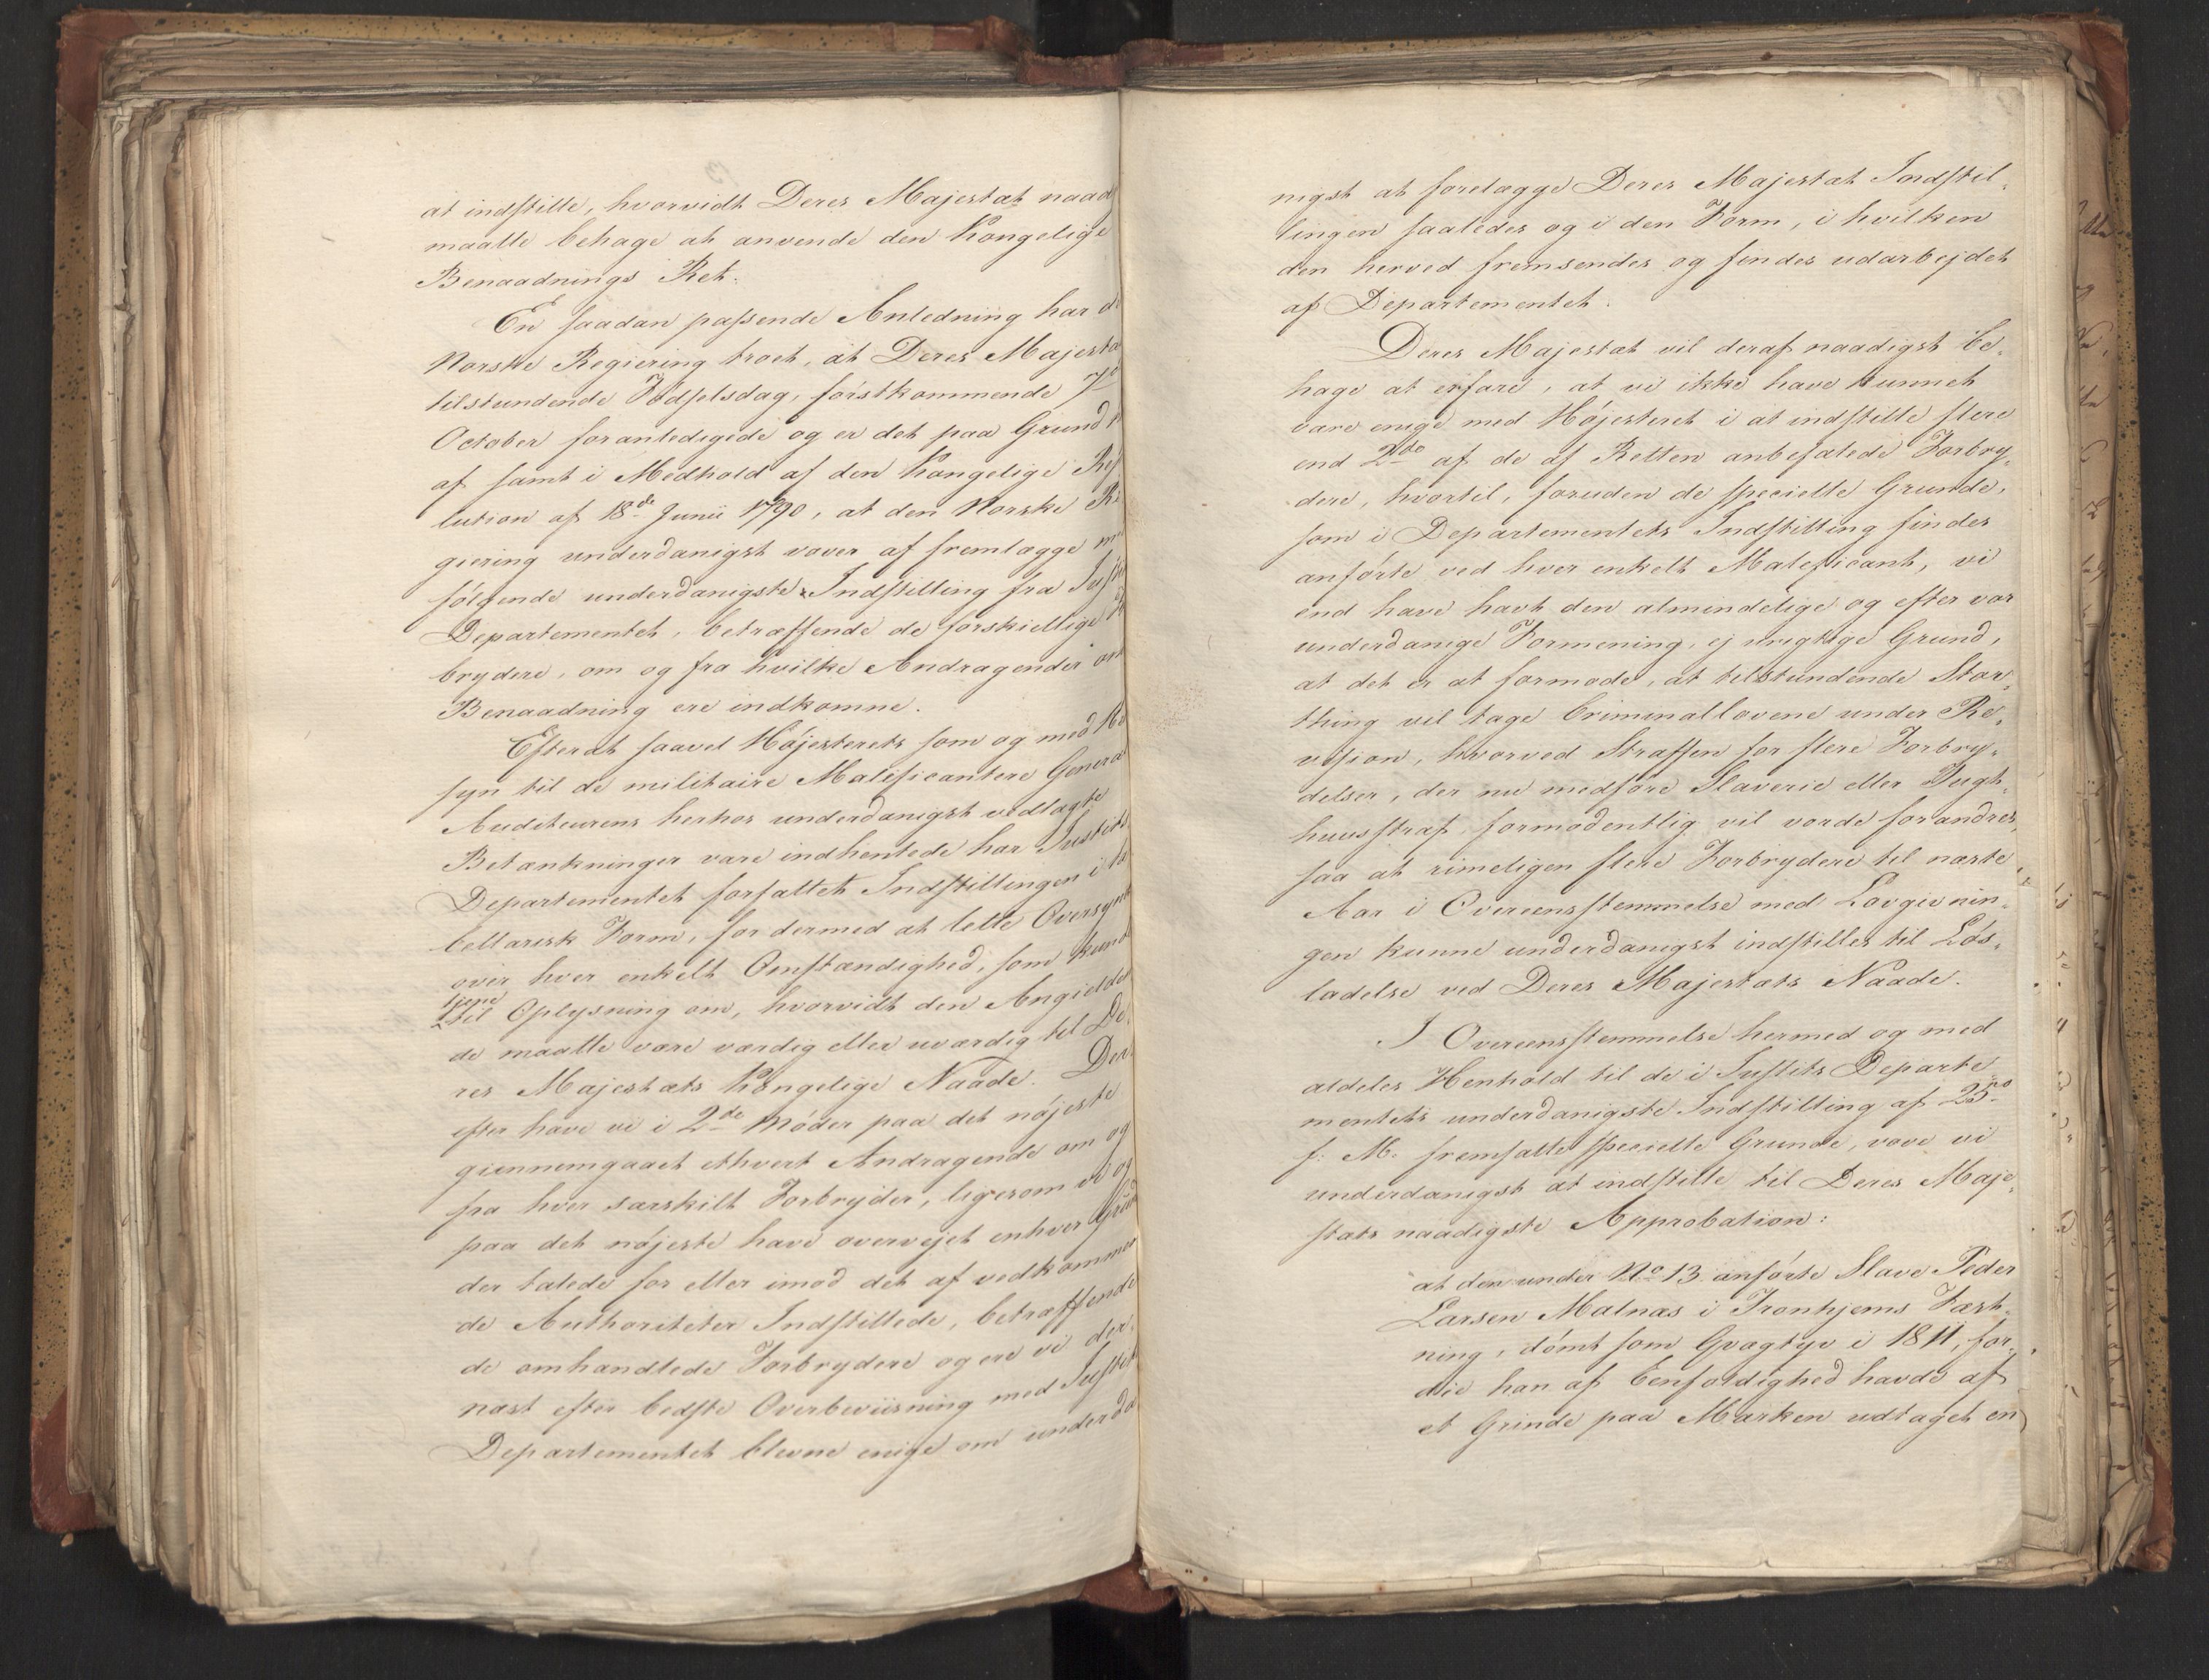 at indstille, hvorvidt Deres Majestæt naad
maatte behage at anvende den Kongelige
Benaadnings Ret.
En saadan passende Anledning har de
Norske Regiering troet, at Deres Majestæ
tilstundende Fødselsdag, førstkommende 7de
October foranledigede og er det paa Grund
af samt i Medhold af den Kongelige Res
lution af 18de Junii 1790, at den Norske Re
giering underdanigst vover af fremlægge
følgende underdanigste Indstilling fra Just
Departementet, betræffende de forskiellige
brydere, om og fra hvilke Andragender om
Benaadning ere indkomne.
Efterat saavel Højesterets som og med He
syn til de militaire Maleficantere General
Auditeurens herhos underdanigst vedlagte
Betænkninger vare indhentede har Justits
Departementet forfattet Indstillingen i ta
bellarisk Form, for dermed at lette Oversynet
over hver enkelt Omstændighed, som kunde
tjene
til Oplysning om, hvorvidt den Angielden
de maatte være værdig eller uværdig til De
res Majestæts Kongelige Naade. Der
efter have vi i 2de Møder paa det nøjeste
giennemgaaet ethvert Andragende om og
fra hver særskilt Forbryder, ligesom vi og
paa det nøjeste have overvejet enhver Grund
der talede for eller imod det af vedkommen
de Authoriteter Indstillede, betræffende
de omhandlede Forbrydere og ere vi der,
næst efter bedste Overbeviisning med Justits
Departementet blevne enige om underda
nigst at forelægge Deres Majestæt Indstil,
lingen saaledes og i den Form, i hvilken
den herved fremsendes og findes udarbejdet
af Departementet.
Deres Majestæt vil deraf naadigst be,
hage at erfare, at vi ikke have kunnet
være enige med Højesteret i at indstille flere
end 2de af de af Retten anbefalede Forbry,
dere, hvortil, foruden de specielle Grunde,
som i Departementets Indstilling findes
anførte ved hver enkelt Maleficant, vi
end have havt den almindelige og efter vor
underdanige Formening, ej urigtige Grund,
at det er at formode, at tilstundende Stor,
thing vil tage Criminallovene under Re,
vision, hvorved Straffen for flere Forbry,
delser, der nu medføre Slaverie eller Tugt,
huusstraf, formodentlig vil vorde forandres,
saa at rimeligen flere Forbrydere til næste
Aar i Overeensstemmelse med Lovgivnin,
gen kunne underdanigst indstilles til Løs,
ladelse ved Deres Majestæts Naade.
I Overeensstemmelse hermed og med
aldeles Henhold til de i Justits Departe
mentets underdanigste Indstilling af 25de
f: M: fremsatte specielle Grunde, vove vi
underdanigst at indstille til Deres Maje,
stæts naadigste Approbation:
at den under No 13 anførte Slave Peder
Larsen Malnæs i Tronhjems Fæst,
ning, dømt som Qvægtyv i 1811, for,
die han af Eenfoldighed havde af
et Grinde paa Marken udtaget en